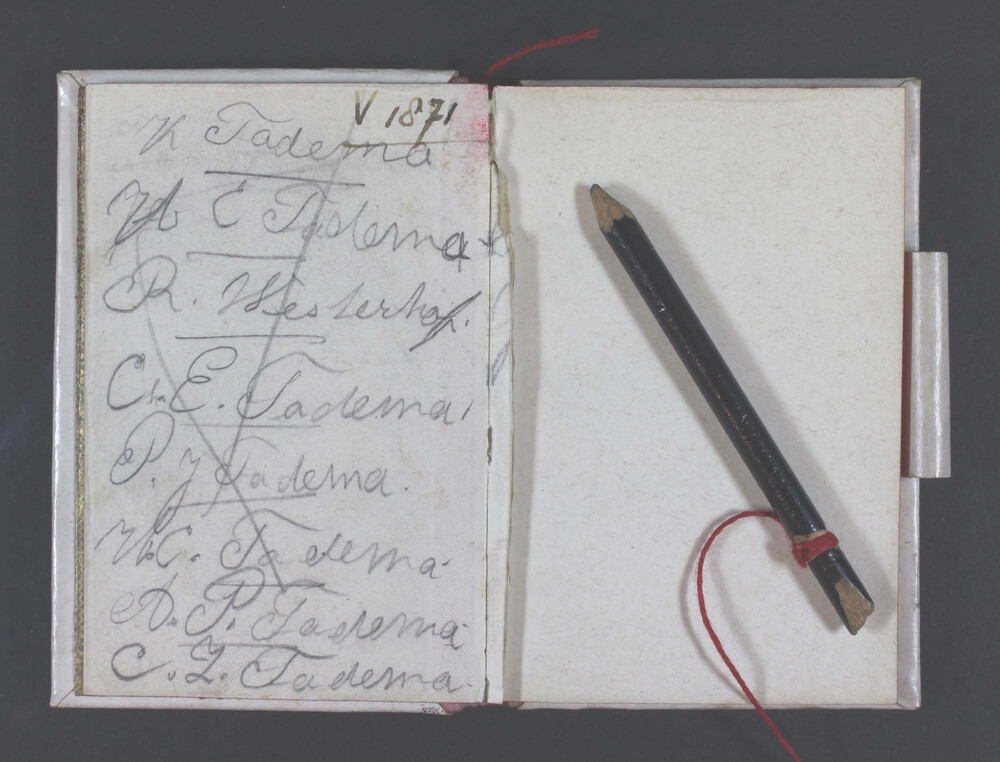 V 1871
K Tadema
E Tadema
R. Westerhof.
C. E. Tadema
P. J Tadema.
C. Tadema
A. P. Tadema
C. Z. Tadema.